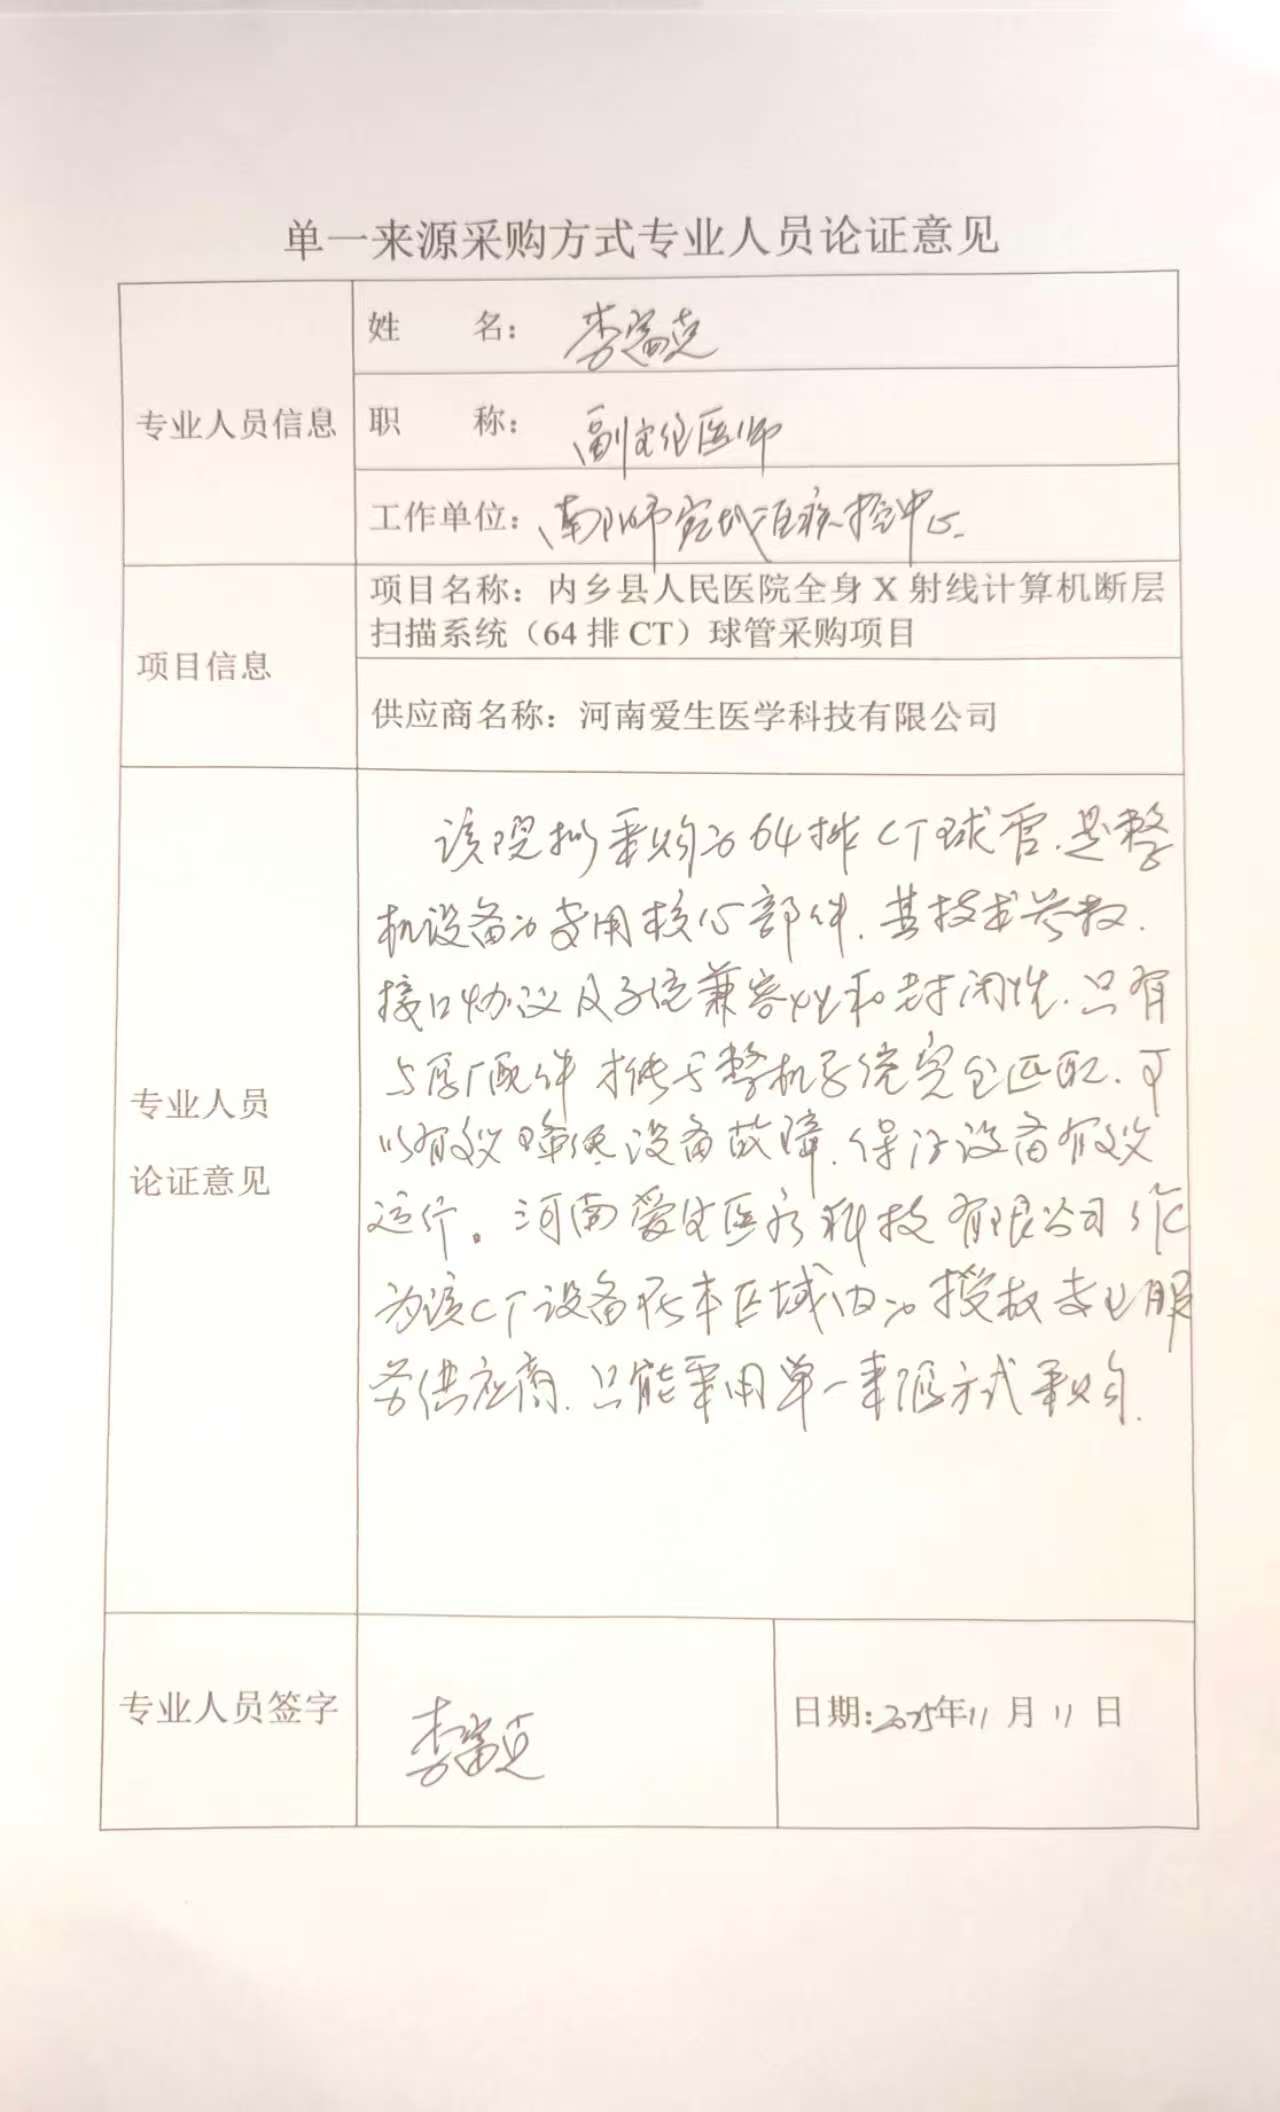 单一来源采购方式专业人员论证意见
专业人员信息
姓 名：李富克
职 称：副主任医师
工作单位：南阳市宛城区疾控中心
项目信息
项目名称：内乡县人民医院全身 X 射线计算机断层
扫描系统（64 排 CT）球管采购项目
供应商名称：河南爱生医学科技有限公司
专业人员
论证意见
该院拟采购的64排CT球管.是整
机设备的专用核心部件.其技术参数.
接口协议及系统兼容性和封闭性.只有
与原厂配件 才能于整机系统完全匹配.可
以有效降低设备故障.保证设备有效
运行。河南爱生医学科技有限公司作
为该CT设备在本区域内的授权专业服
务供应商.只能采用单一来源方式采购.
专业人员签字
李富克
日期:2025年11月11日